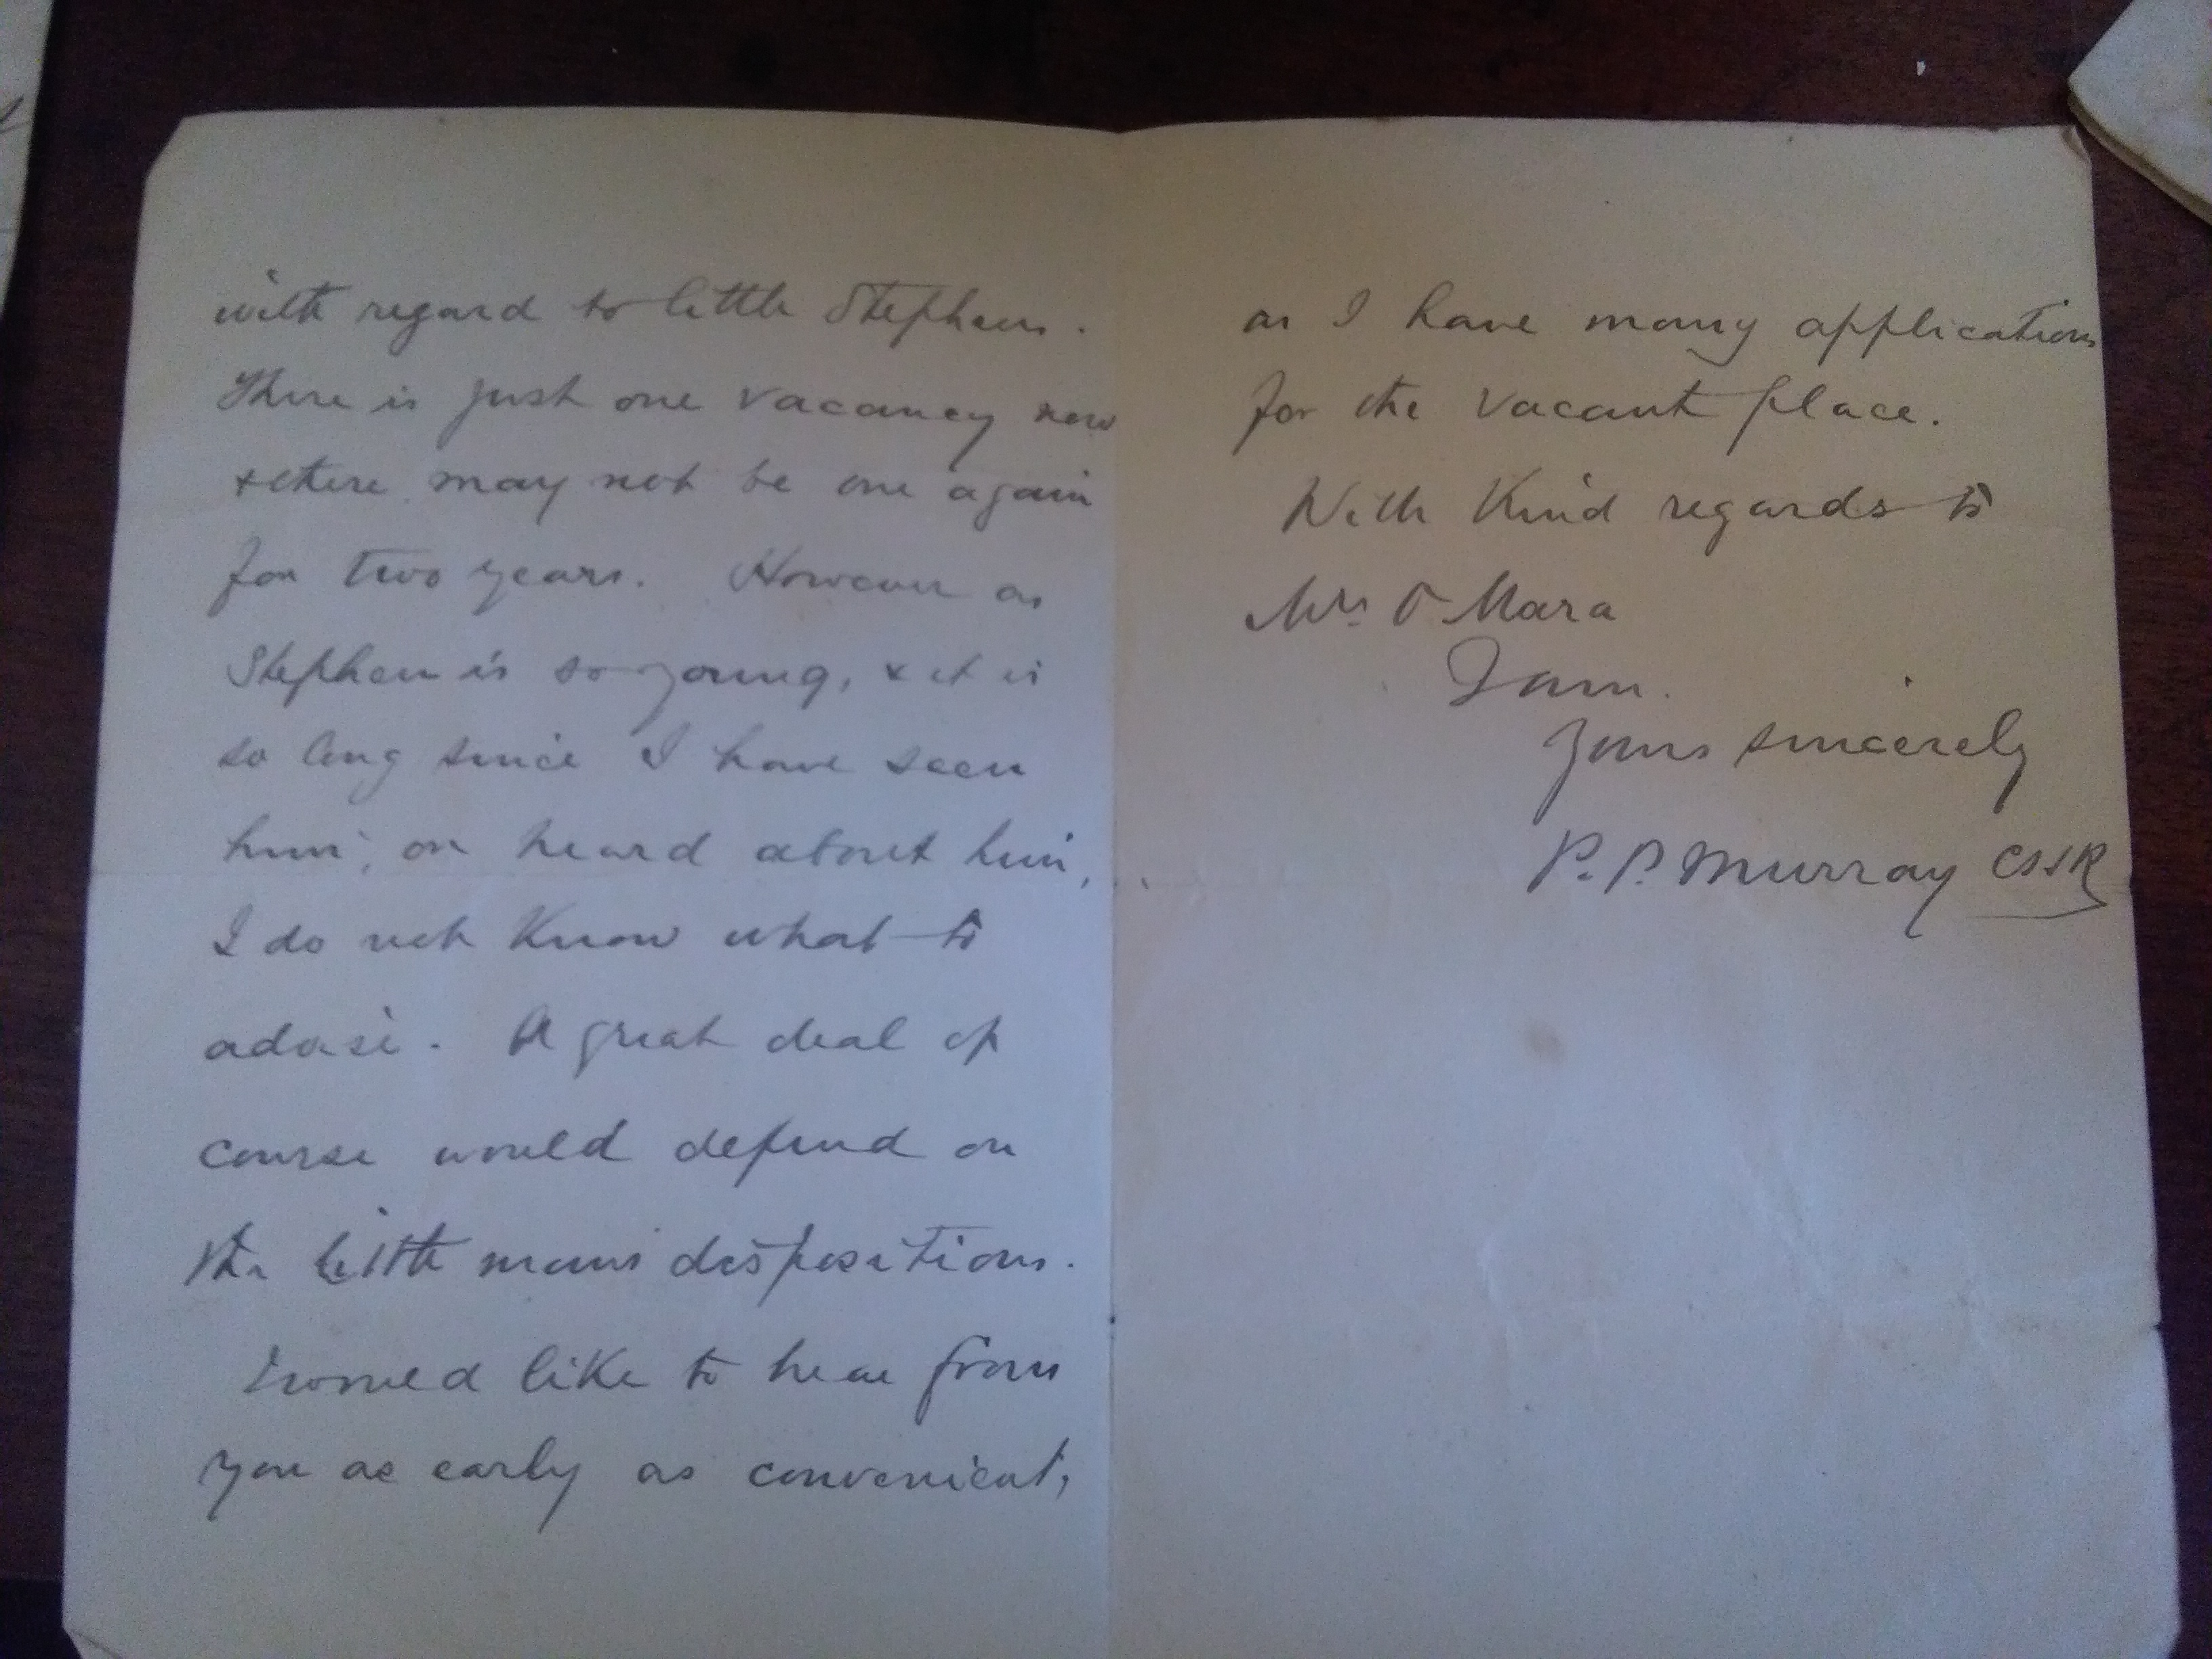 with regard to little Stephen.
There is just one vacancy now
& there may not be one again
for two years. However as
Stephen is so young, & it is
so long since I have seen
him, or heard about him,
I do not know what to
advise. A great deal of
course would depend on
the little mans dispositions.
I would like to hear from
you as early as convenient,
as I have many applications
for the vacant place.
With Kind regards to
Mrs O Mara
I am.
Yours sincerely
P. P. Murray CSSR